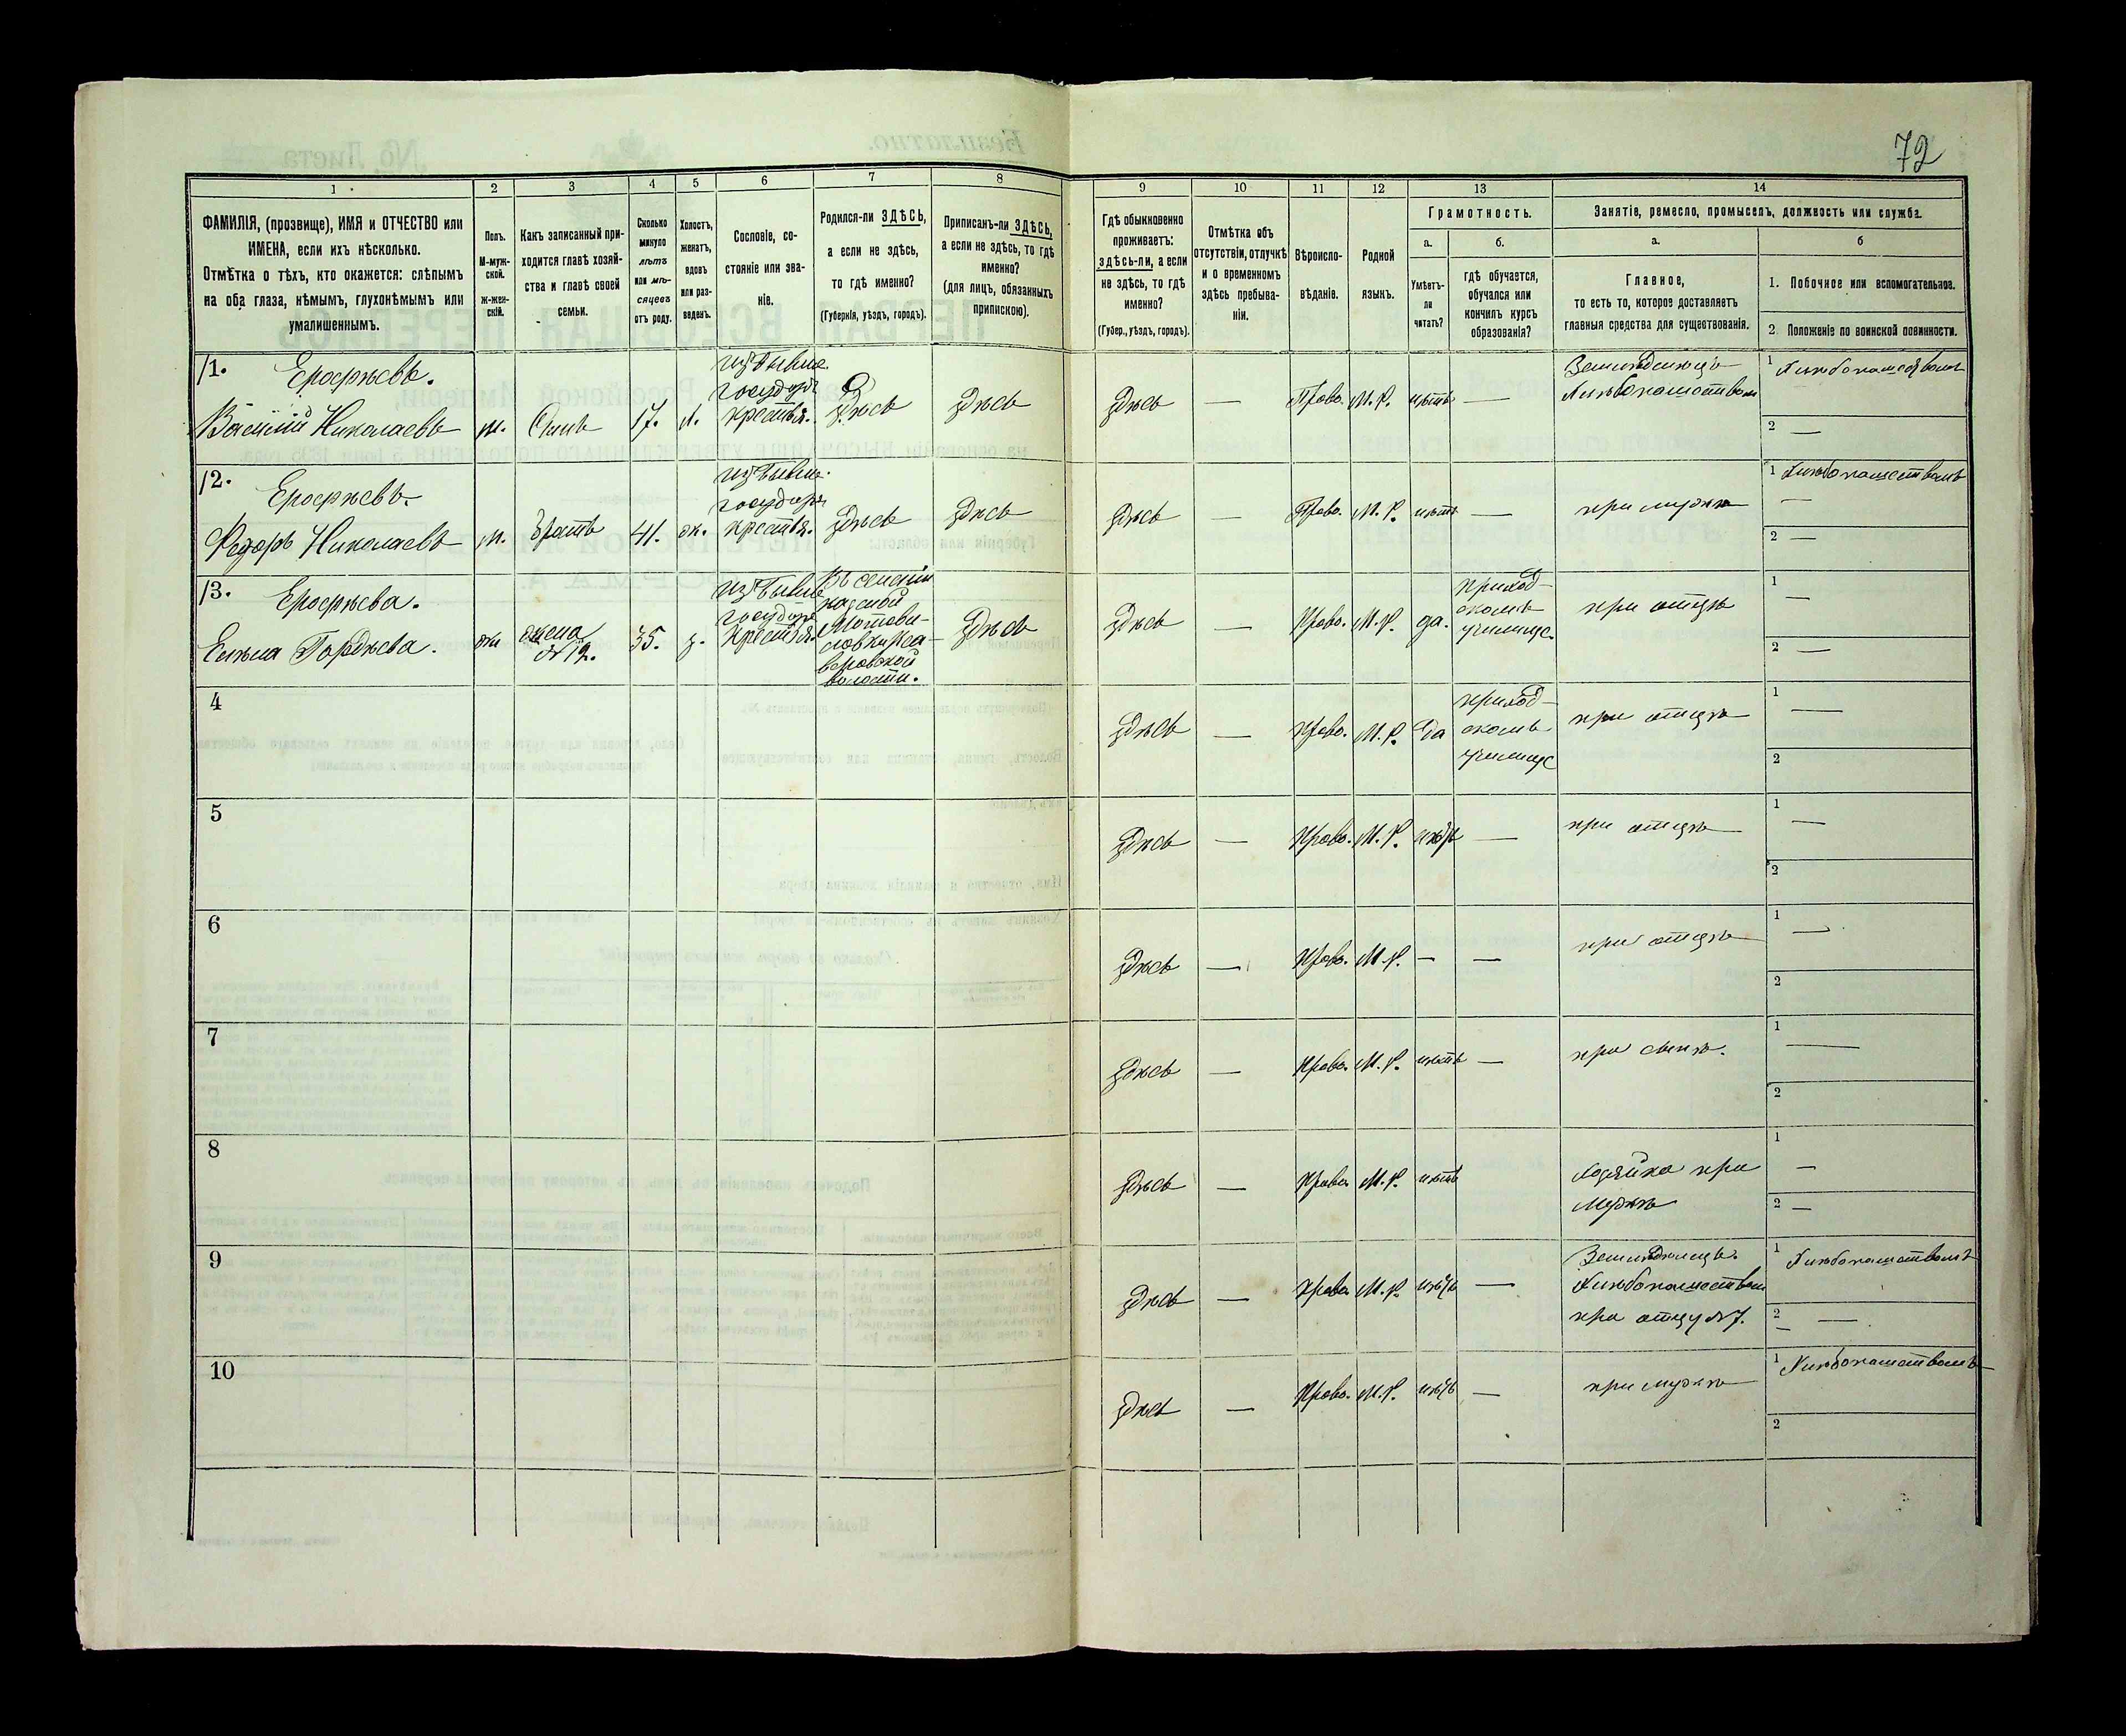 72
1
2
3
4
5
6
7
8
9
10
11
12
13
14
ФАМИЛІЯ, (прозвище), ИМЯ и ОТЧЕСТВО или
ИМЕНА, если ихъ нѣсколько.
Отмѣтка о тѣхъ, кто окажется: слѣпымъ
на оба глаза, нѣмымъ, глухонѣмымъ или
умалишеннымъ.
Полъ.
М-муж-
ской.
ж-жен-
скій.
Какъ записанный при-
ходится главѣ хозяй-
ства и главѣ своей
семьи.
Сколько
минуло
лѣтъ
или мѣ-
сяцевъ
отъ роду.
Холостъ,
женатъ,
вдовъ
или раз-
веденъ.
Сословіе, со-
стояніе или зва-
ніе.
Родился-ли ЗДѢСЬ,
а если не здѣсь,
то гдѣ именно?
(Губернія, уѣздъ, городъ).
Приписанъ-ли ЗДѢСЬ,
а если не здѣсь, то гдѣ
именно?
(для лицъ, обязанныхъ
припискою).
Гдѣ обыкновенно
проживаетъ:
здѣсь-ли, а если
не здѣсь, то гдѣ
именно?
(Губер., уѣздъ, городъ).
Отмѣтка объ
отсутствіи, отлучкѣ
и о временномъ
здѣсь пребыва-
ніи.
Вѣроиспо-
вѣданіе.
Родной
языкъ.
Грамотность.
а.
Умѣетъ-
ли
читать?
б.
гдѣ обучается,
обучался или
кончилъ курсъ
образованія?
Занятіе, ремесло, промыселъ, должность или служба.
а.
Главное,
то есть то, которое доставляетъ
главныя средства для существованія.
б
1. Побочное или вспомогательное.
2. Положеніе по воинской повинности.
11. Ерофѣевъ.
Василій Николаевъ
м. Сынъ 17. х.
изъ бывше.
государ.
крестья.
здѣсь
здѣсь
здѣсь — Право. М. Р. нѣтъ —
Хлѣбопашествомъ
1 Хлѣбопашествомъ
2 —
12. Ерофѣевъ.
Федоръ Николаевъ
м. братъ 41. ж.
изъ бывше.
государ.
крестья.
здѣсь
здѣсь
здѣсь — Право. М. Р. нѣтъ — при мужѣ
1 Хлѣбопашествомъ
—
2 —
13. Ерофѣева.
Гордѣева.
жен
жена
№ 12.
35. з.
изъ бывше
государ.
крестья.
волости.
здѣсь
здѣсь — Право. М. Р. да.
приход-
скомъ
училищ.
при отцѣ
1 —
2 —
4
здѣсь — Право. М. Р. Да
приход-
скомъ
училищ
при отцѣ
1 —
2
5
здѣсь — Право. М. Р. нѣтъ — при отцѣ
1 —
2
6
здѣсь — Право. М. Р. — — при отцѣ
1 —
2
7
здѣсь — Право. М. Р. нѣтъ — при сынѣ.
1 —
2
8
здѣсь — Право. М. Р. нѣтъ
хозяйка при
мужѣ
1 —
2 —
9
здѣсь — Право. М. Р. нѣтъ —
Хлѣбопашествомъ
при отцу № 7.
1 Хлѣбопашествомъ
2 —
10
здѣсь — Право. М. Р. нѣтъ — при мужѣ
1 Хлѣбопашествомъ
2